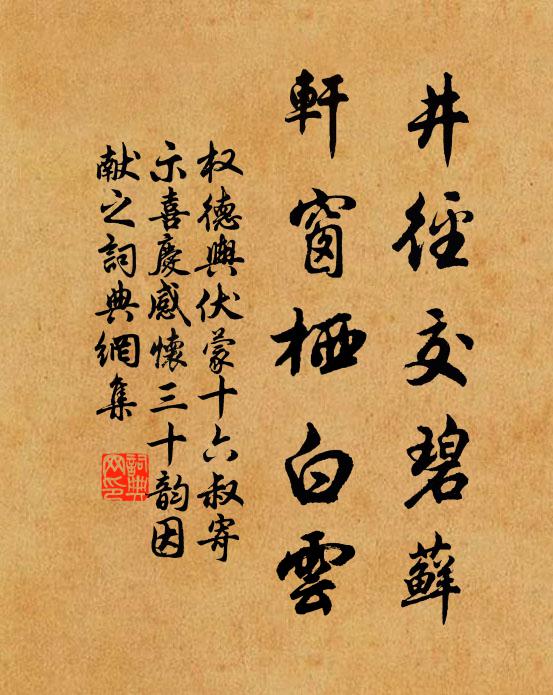 井徑交碧蘚
軒窗栖白雲
权德輿伏蒙十六叔寄
示喜慶感懷三十韵因
献之詞典網集
詞典网印